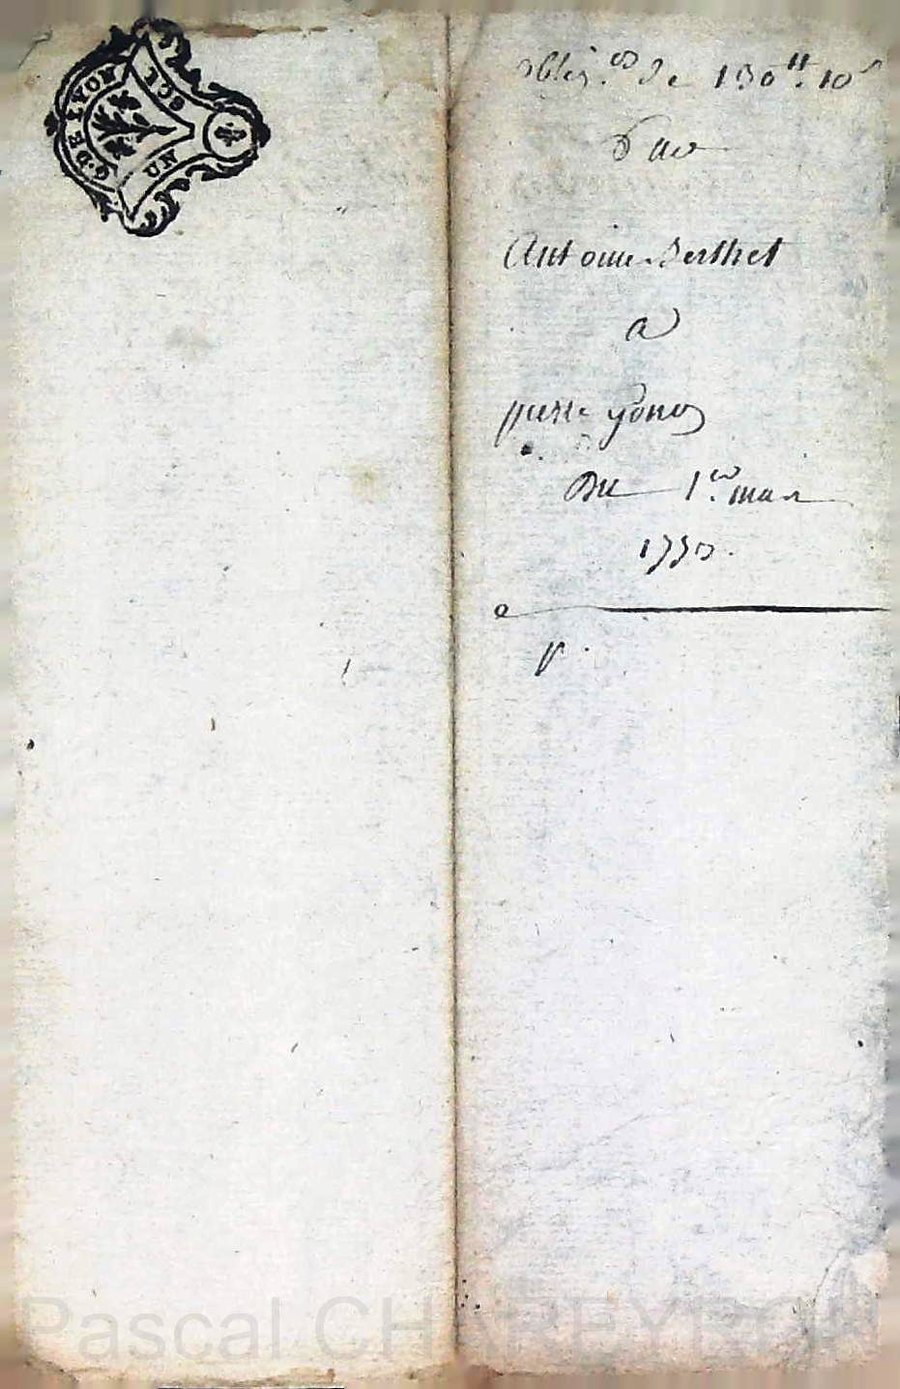 G. DE LYON
UN SOL
oblig.on de 130tt. 10s
Par
Antoine Berthet
a
pierre
Du 1er mars
Pascal CHAREYRON